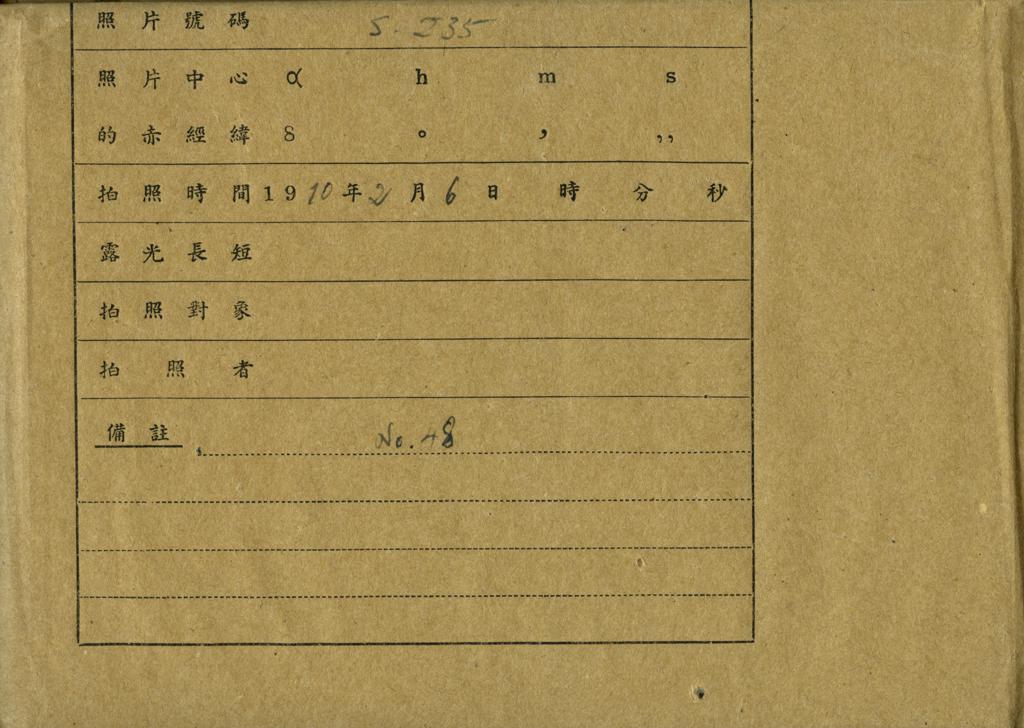 照片號碼 S. I35
照片中心 α h m s
的赤經緯 δ ° ’ ’’
拍照時間1910年2月6日 時 分 秒
露光長短
拍照對象
拍照者
備註 No. 48